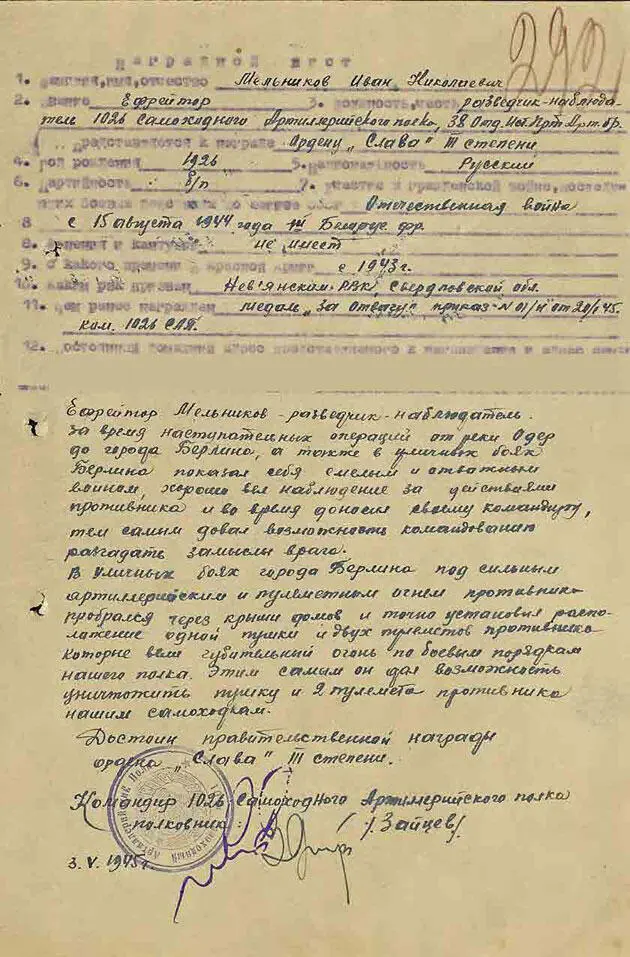 292
Наградной лист
1. Фамилия, имя, отчество Мельников Иван Николаевич
2. Звание Ефрейтор 3. Должность, часть разведчик-наблюда-
тель 1026 Самоходного Артиллерийского полка, 38 Отд. Ист. Прт. Арт. бр.
представляется к награде Ордену „Слава" III степени
4. Год рождения 1926 5. Национальность Русский
6. Партийность б/п 7. Участие в гражданской войне, последую-
щих боевых Отечественная война
8 с 15 августа 1944 года Белорус фр.
8. Ранения и контузии не имеет
9. С какого времени в Красной Армии с 1943 г.
10. Каким РВК призван Нев'янским РВК, Свердловской обл.
11. Чем ранее награжден медаль „За Отвагу", приказ N 01/н от 20/1 45.
ком. 1026 САП.
12.
Ефрейтор Мельников - разведчик-наблюдатель.
За время наступательных операций от реки Одер
до города Берлино, а также в уличных боях
Берлина показал себя смелым и отважным
воином, хорошо вел наблюдение за действиями
противника и во время доносил своему командиру,
тем самим довал возможность командованию
разгадать замыслы врага.
В уличных боях города Берлина под сильным
артиллерийским и пулеметном огнем противника
пробрался через крыши домов и точно установил распо-
ложение одной пушки и двух пулеметов противника
которые вели губительный огонь по боевым порядкам
нашего полка. Этим самым он дал возможность
уничтожить пушку и 2 пулемета противника
нашим самоходкам.
Достоин правительственной награды
ордена „Слава" III степени.
Командир 1026 Самоходного Артиллерийского полка
полковник: /Зайцев/
3. V. 1945 г.